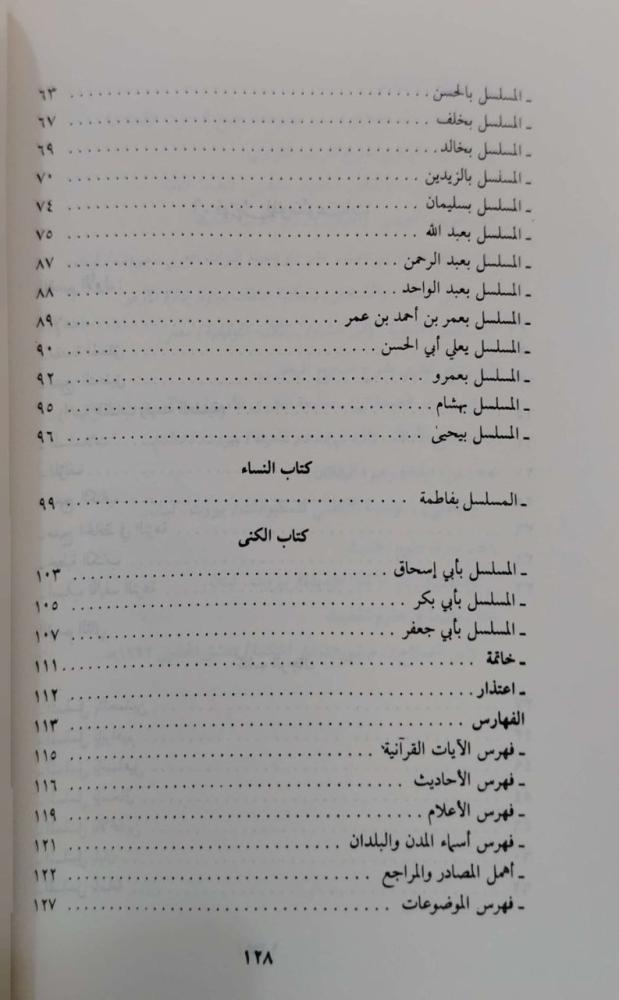 ـ المسلسل بالحسن ........................................ ٦٣
ـ المسلسل بخلف ........................................ ٦٧
ـ المسلسل بخالد ........................................ ٦٩
ـ المسلسل بالزيدين ........................................ ٧٠
ـ المسلسل بسليمان ........................................ ٧٤
ـ المسلسل بعبد الله ........................................ ٧٥
ـ المسلسل بعبد الرحمن ........................................ ٨٧
ـ المسلسل بعبد الواحد ........................................ ٨٨
ـ المسلسل بعمر بن أحمد بن عمر ........................................ ٨٩
ـ المسلسل يعلي أبي الحسن ........................................ ٩٠
ـ المسلسل بعمرو ........................................ ٩٢
ـ المسلسل بهشام ........................................ ٩٥
ـ المسلسل بيحيى ........................................ ٩٦
كتاب النساء
ـ المسلسل بفاطمة ........................................ ٩٩
كتاب الكنى
ـ المسلسل بأبي إسحاق ........................................ ١٠٣
ـ المسلسل بأبي بكر ........................................ ١٠٥
ـ المسلسل بأبي جعفر ........................................ ١٠٧
ـ خاتمة ........................................ ١١١
ـ اعتذار ........................................ ١١٢
الفهارس ........................................ ١١٣
ـ فهرس الآيات القرآنية ........................................ ١١٥
ـ فهرس الأحاديث ........................................ ١١٦
ـ فهرس الأعلام ........................................ ١١٩
ـ فهرس أسماء المدن والبلدان ........................................ ١٢١
ـ أهمل المصادر والمراجع ........................................ ١٢٢
ـ فهرس الموضوعات ........................................ ١٢٧
١٢٨